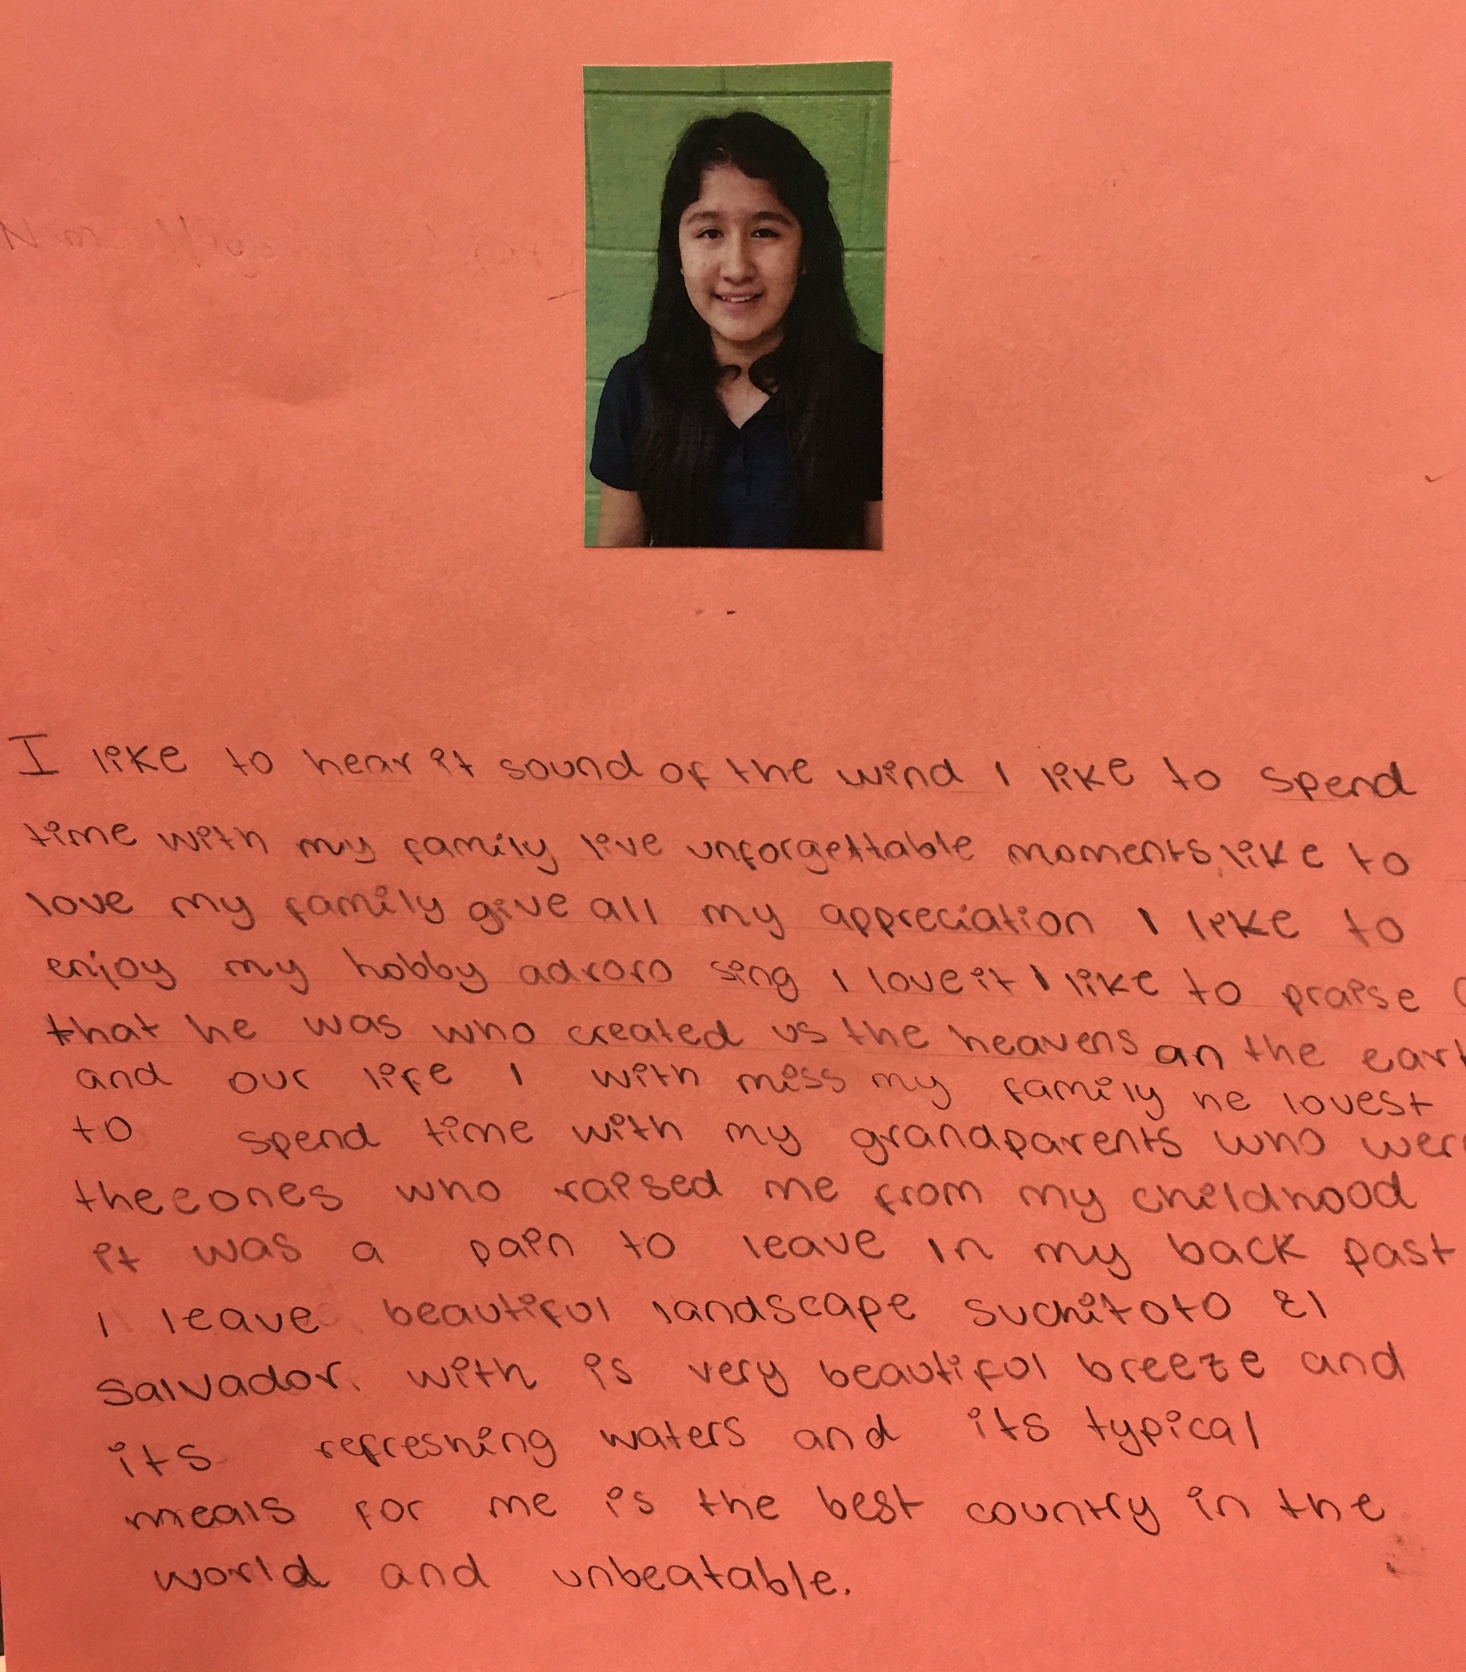 I like to hear it sound of the wind I like to spend
time with my family live unforgettable moments, like to
love my family give all my appreciation I like to
enjoy my hobby adroro sing I love it I like to praise
that he was who created us the heavens an the eart
and our life I with miss my family he lovest
to spend time with my grandparents who wer
theeones who raised me from my childhood
it was a pain to leave in my back past
I leave beautiful landscape suchitoto El
Salvador. with is very beautiful breeze and
its refreshing waters and its typical
meals for me is the best country in the
world and unbeatable.